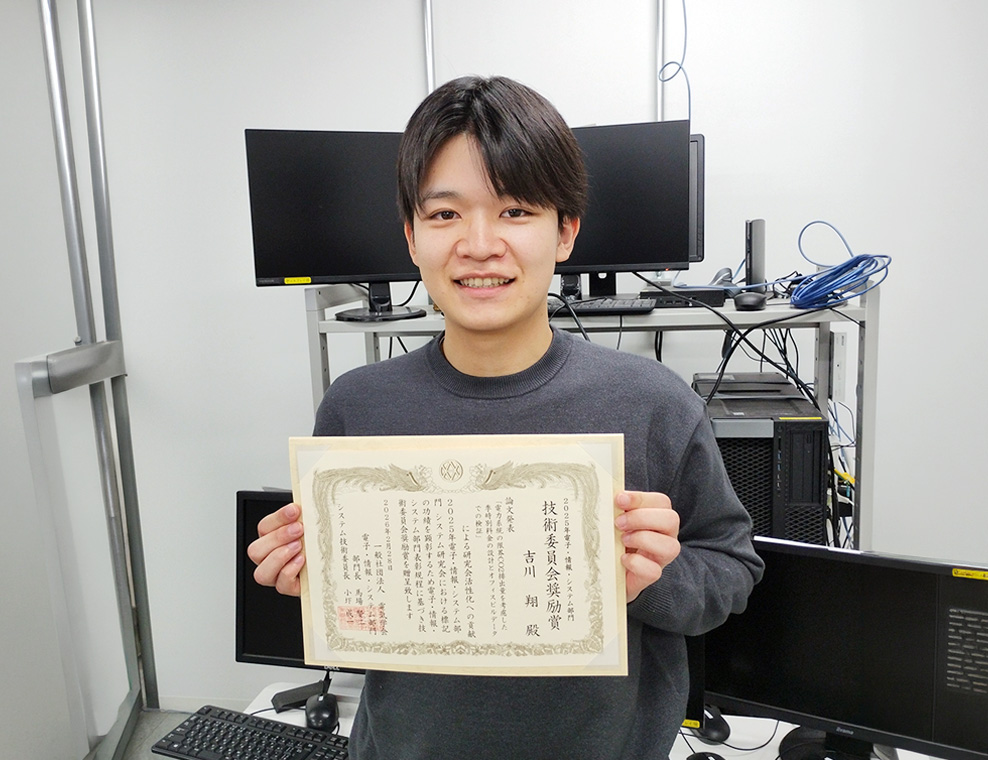 2025年電子・情報・システム部門
技術委員会奨励賞
吉川 翔 殿
論文発表
「電力系統の限界CO2排出量を考慮した
季時別料金の設計とオフィスビルデータ
での検証」
による研究会活性化への貢献
2025年電子・情報・システム部
門 システム研究会における標記
の功績を顕彰するため電子・情報・
システム部門表彰規程に基づき技
術委員会奨励賞を贈呈致します
2026年2月28日
一般社団法人 電気学会
電子・情報・システム部門
部門長 馬場
システム技術委員長 小圷
DELL
iiyama